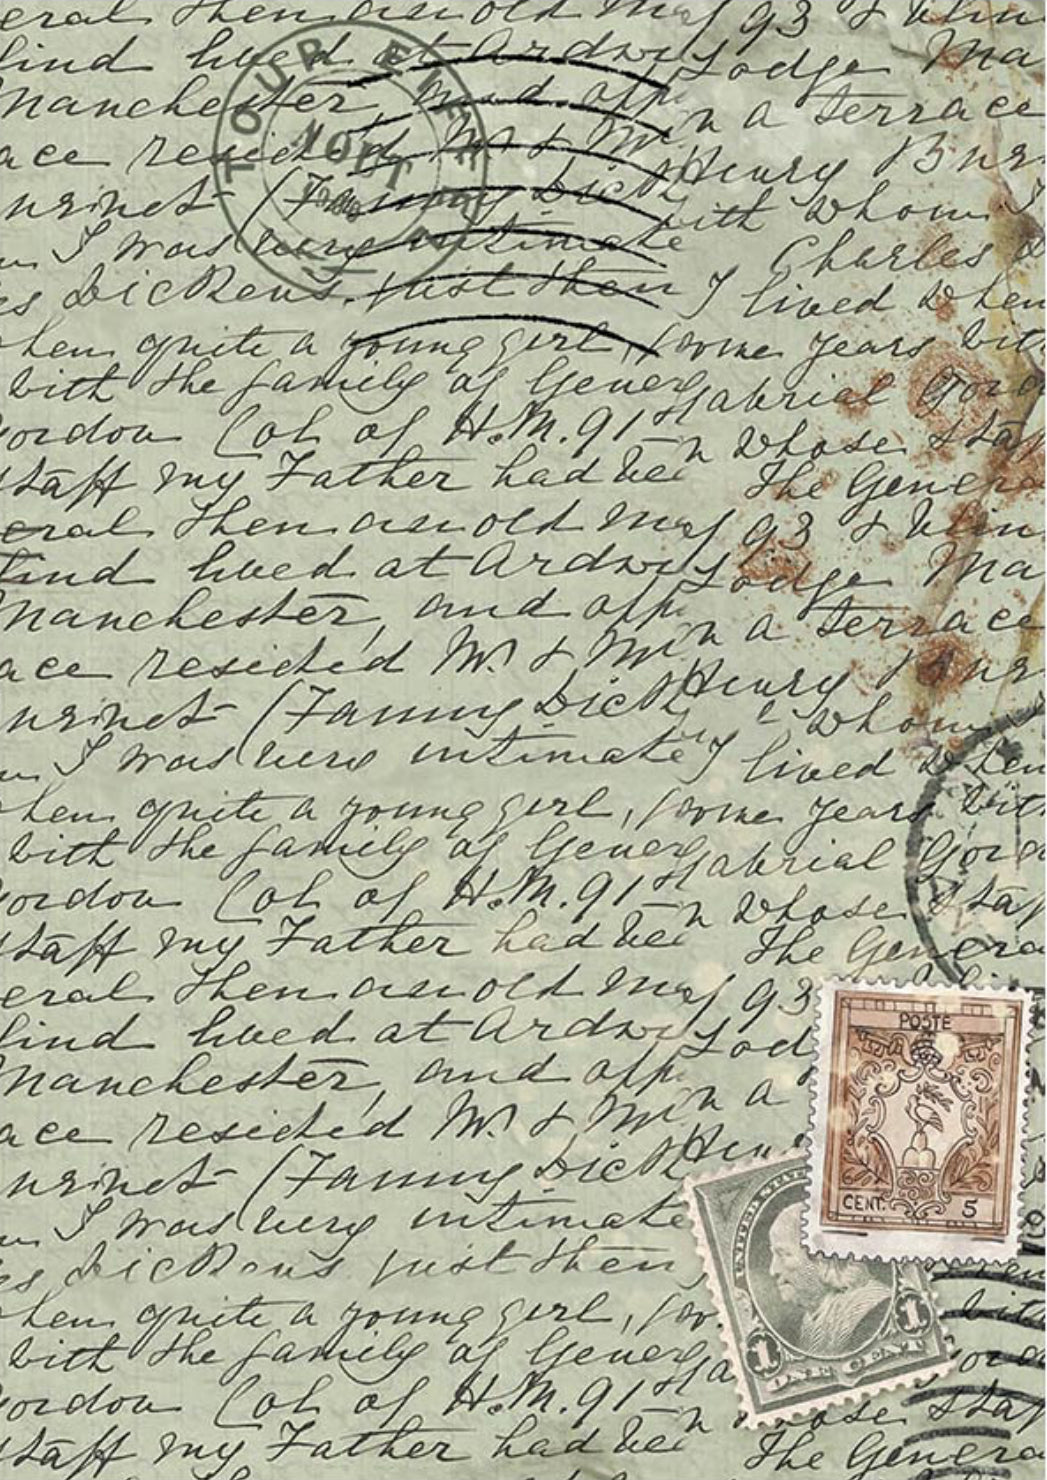 eral then an old man of 93 & blin
lind lived at Ardwick Lodge Ma
Manchester, and opp in a terrace
ace resided Mr & Mrs Henry Bur
urnet (Fanny Dick with whom I
I was very intimate Charles D
es Dickens just then I lived when
hen quite a young girl, some years wit
with the family of General Gabrial Gord
Gordon Col of H.M. 91st on whose staf
staff my Father had been The Genera
eral then an old man of 93 & blin
lind lived at Ardwick Lodge Ma
Manchester, and opp in a terrace
ace resided Mr & Mrs Henry Bur
urnet (Fanny Dick whom
I was very intimate I lived when
hen quite a young girl, some years wit
with the family of General Gabrial Gord
Gordon Col of H.M. 91st on whose staf
staff my Father had been The Genera
eral then an old man of 93
lind lived at Ardwick Lod
Manchester, and opp in a
ace resided Mr & Mrs Hen
urnet (Fanny Dick
I was very intimate
es Dickens just then
hen quite a young girl, so
with the family of General Ga
Gordon Col of H.M. 91st on whose staf
staff my Father had been The Genera
TOUR EIFFEL
POSTE
CENT. 5
1 1